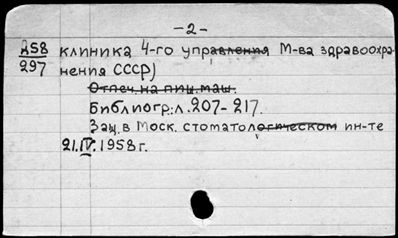 -2-
А58 клиника 4-го управления М-ва здравоохра-
297 нения СССР)
Отпеч. на пиш. маш.
Библиогр: л. 207-217.
Защ. в Моск. стоматологическом ин-те
21.IV.1958г.